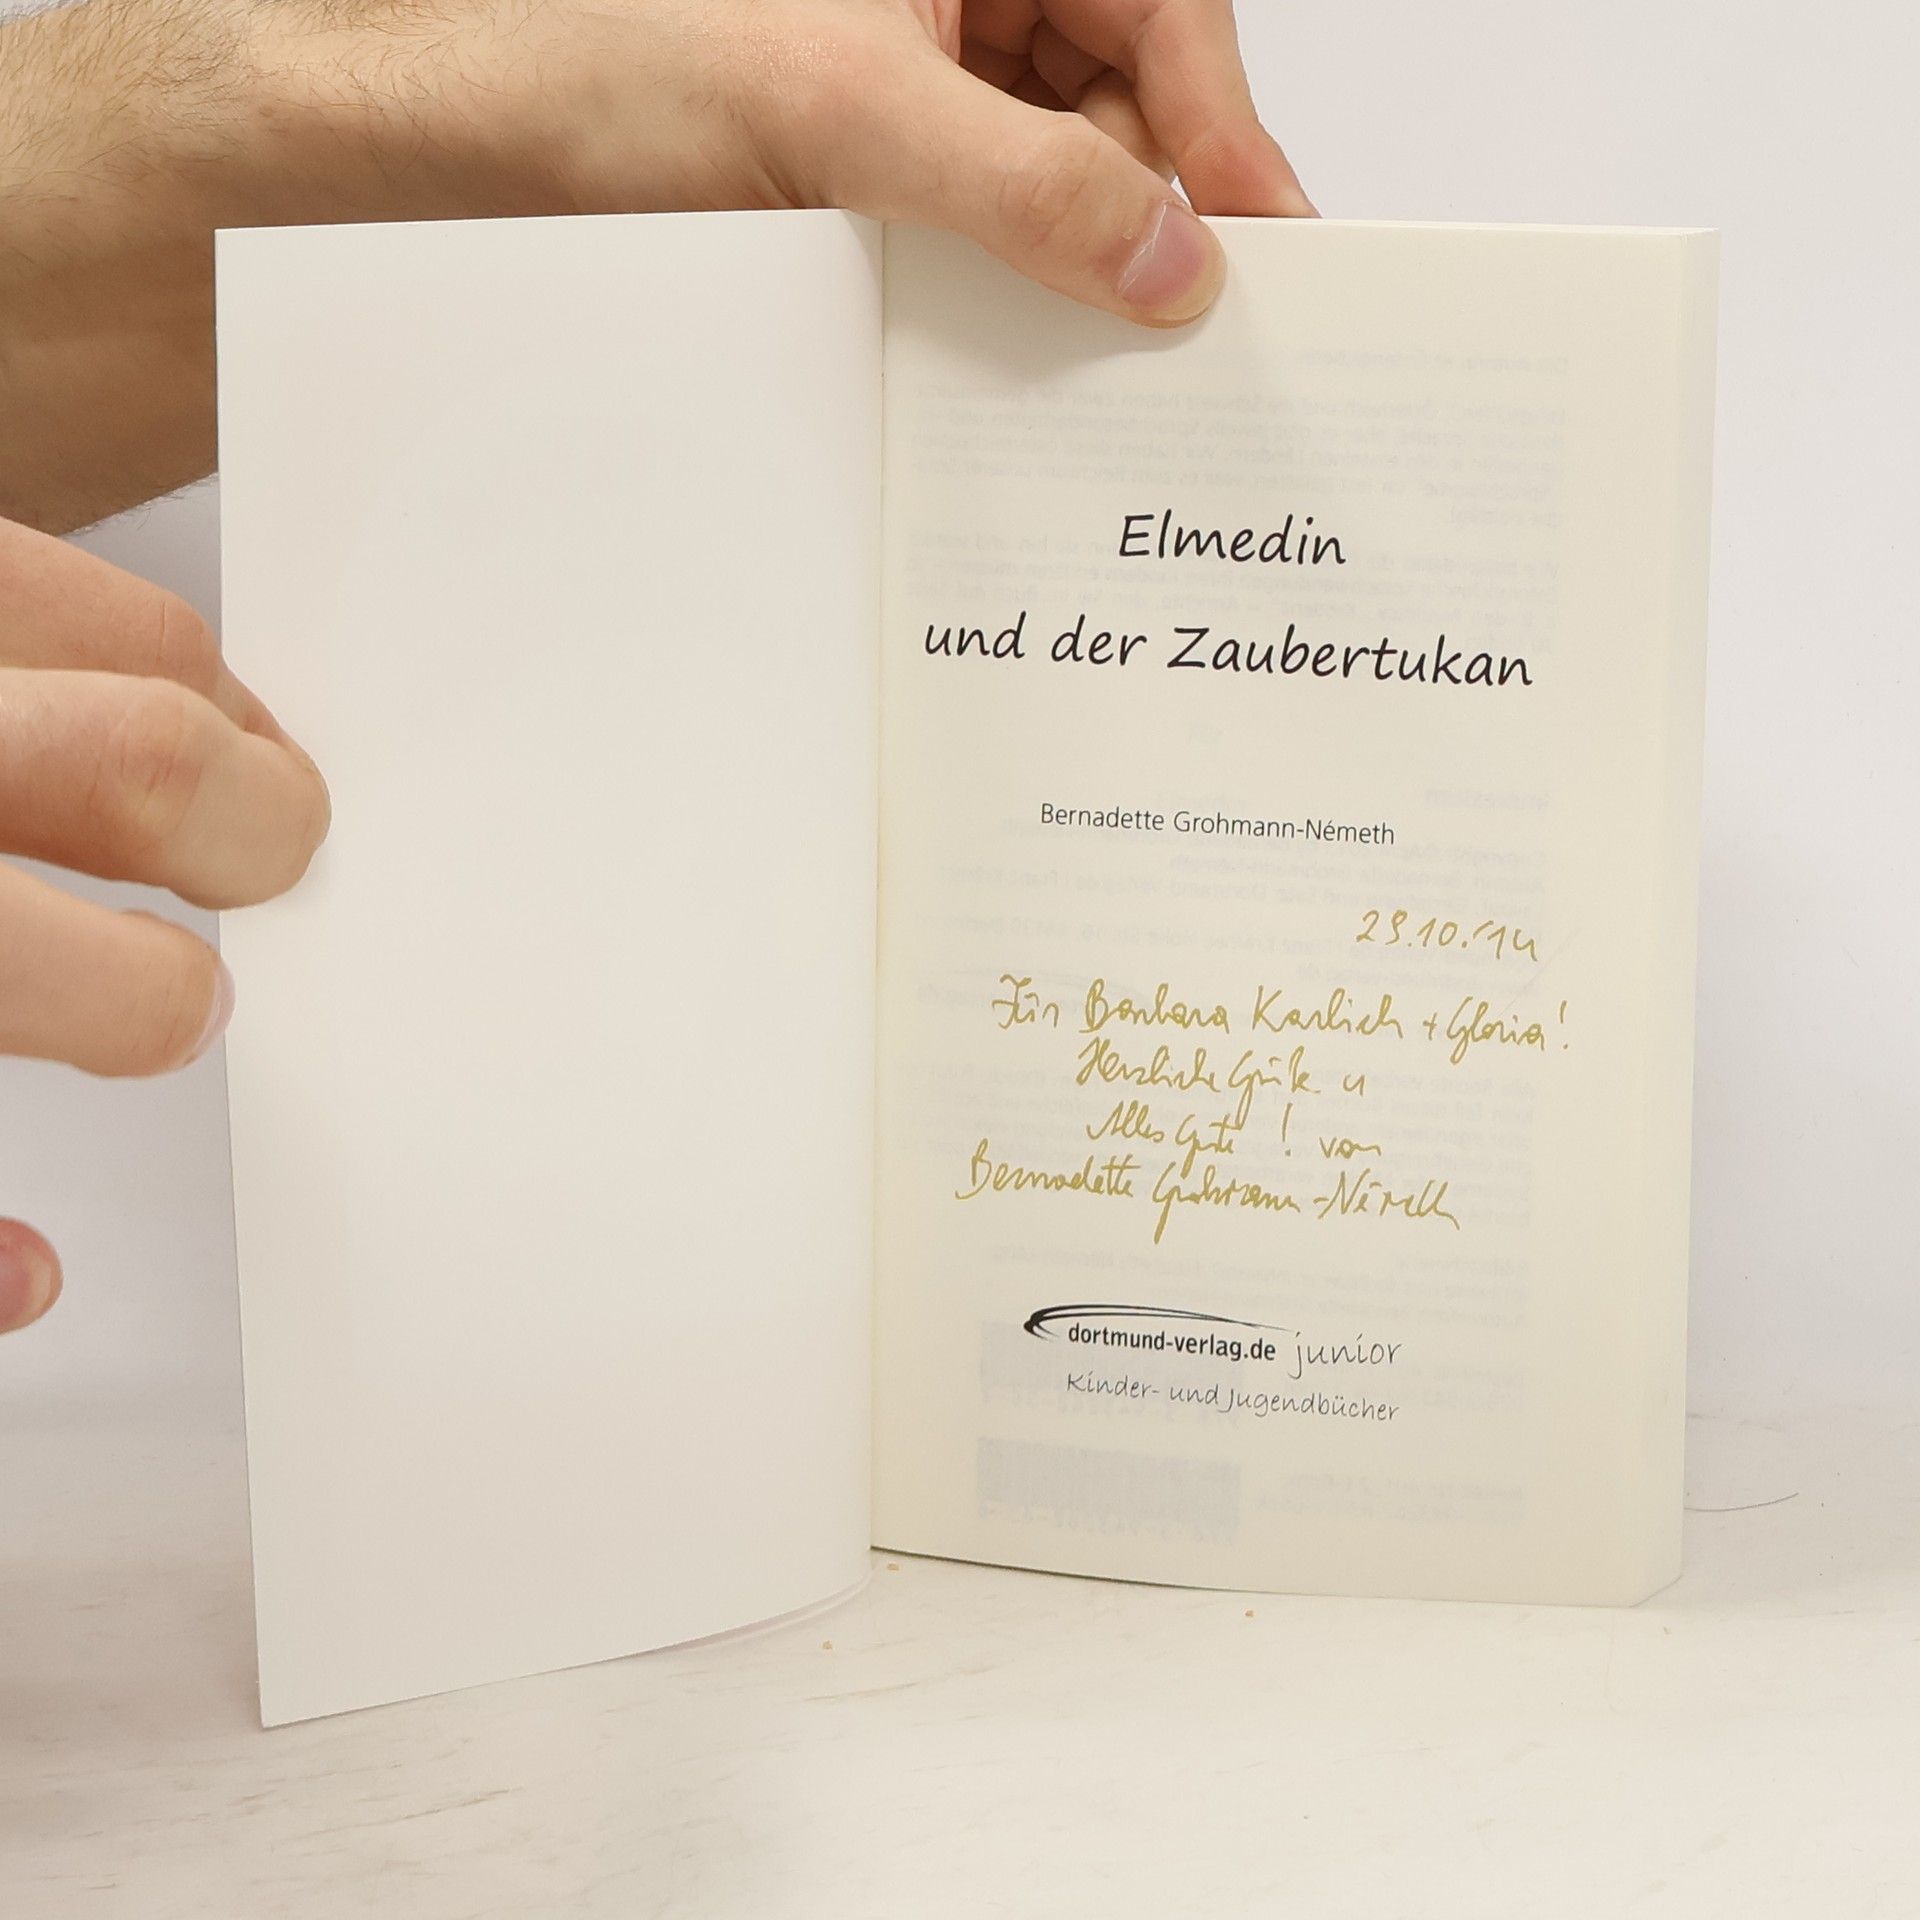 Elmedin
und der Zaubertukan
Bernadette Grohmann-Németh
29.10.'14
Für Barbara Karlich + Gloria!
Herzliche Grüße u
Alles Gute! von
Bernadette Grohmann-Németh
dortmund-verlag.de junior
Kinder- und Jugendbücher